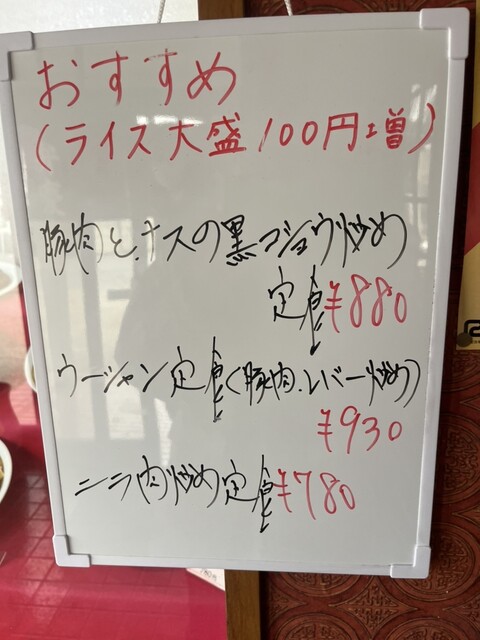 おすすめ
(ライス大盛100円増)
豚肉とナスの黒コショウ炒め
定食¥880
ウーシャン定食(豚肉、レバー炒め)
¥930
ニラ肉炒め定食¥780